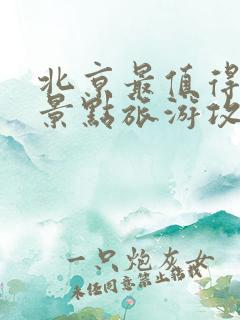 北京最值得
景點旅游攻
一只炮灰女
未经同意禁止转载